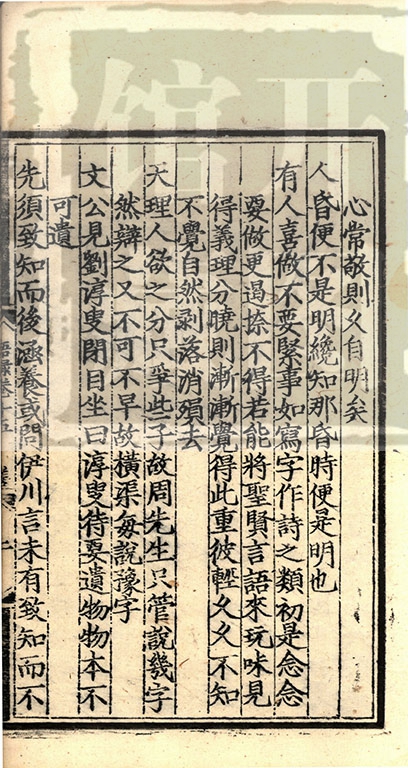 心常敬則久自明矣
人昏便不是明纔知那昏時便是明也
有人喜做不要緊事如寫字作詩之類初是念念
要做更遏捺不得若能將聖賢言語來玩味見
得義理分曉則漸漸覺得此重彼輕久久不知
不覺自然剥落消殞去
天理人欲之分只爭些子故周先生只管說幾字
然辯之又不可不早故橫渠每說豫字
文公見劉淳叟閉目坐曰淳叟待要遺物物本不
可遺
先須致知而後涵養或問伊川言未有致知而不